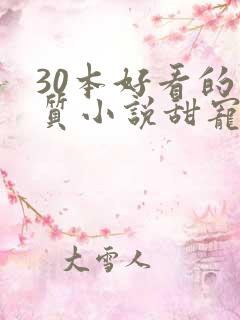 30本好看的
質小說甜寵
大雪人